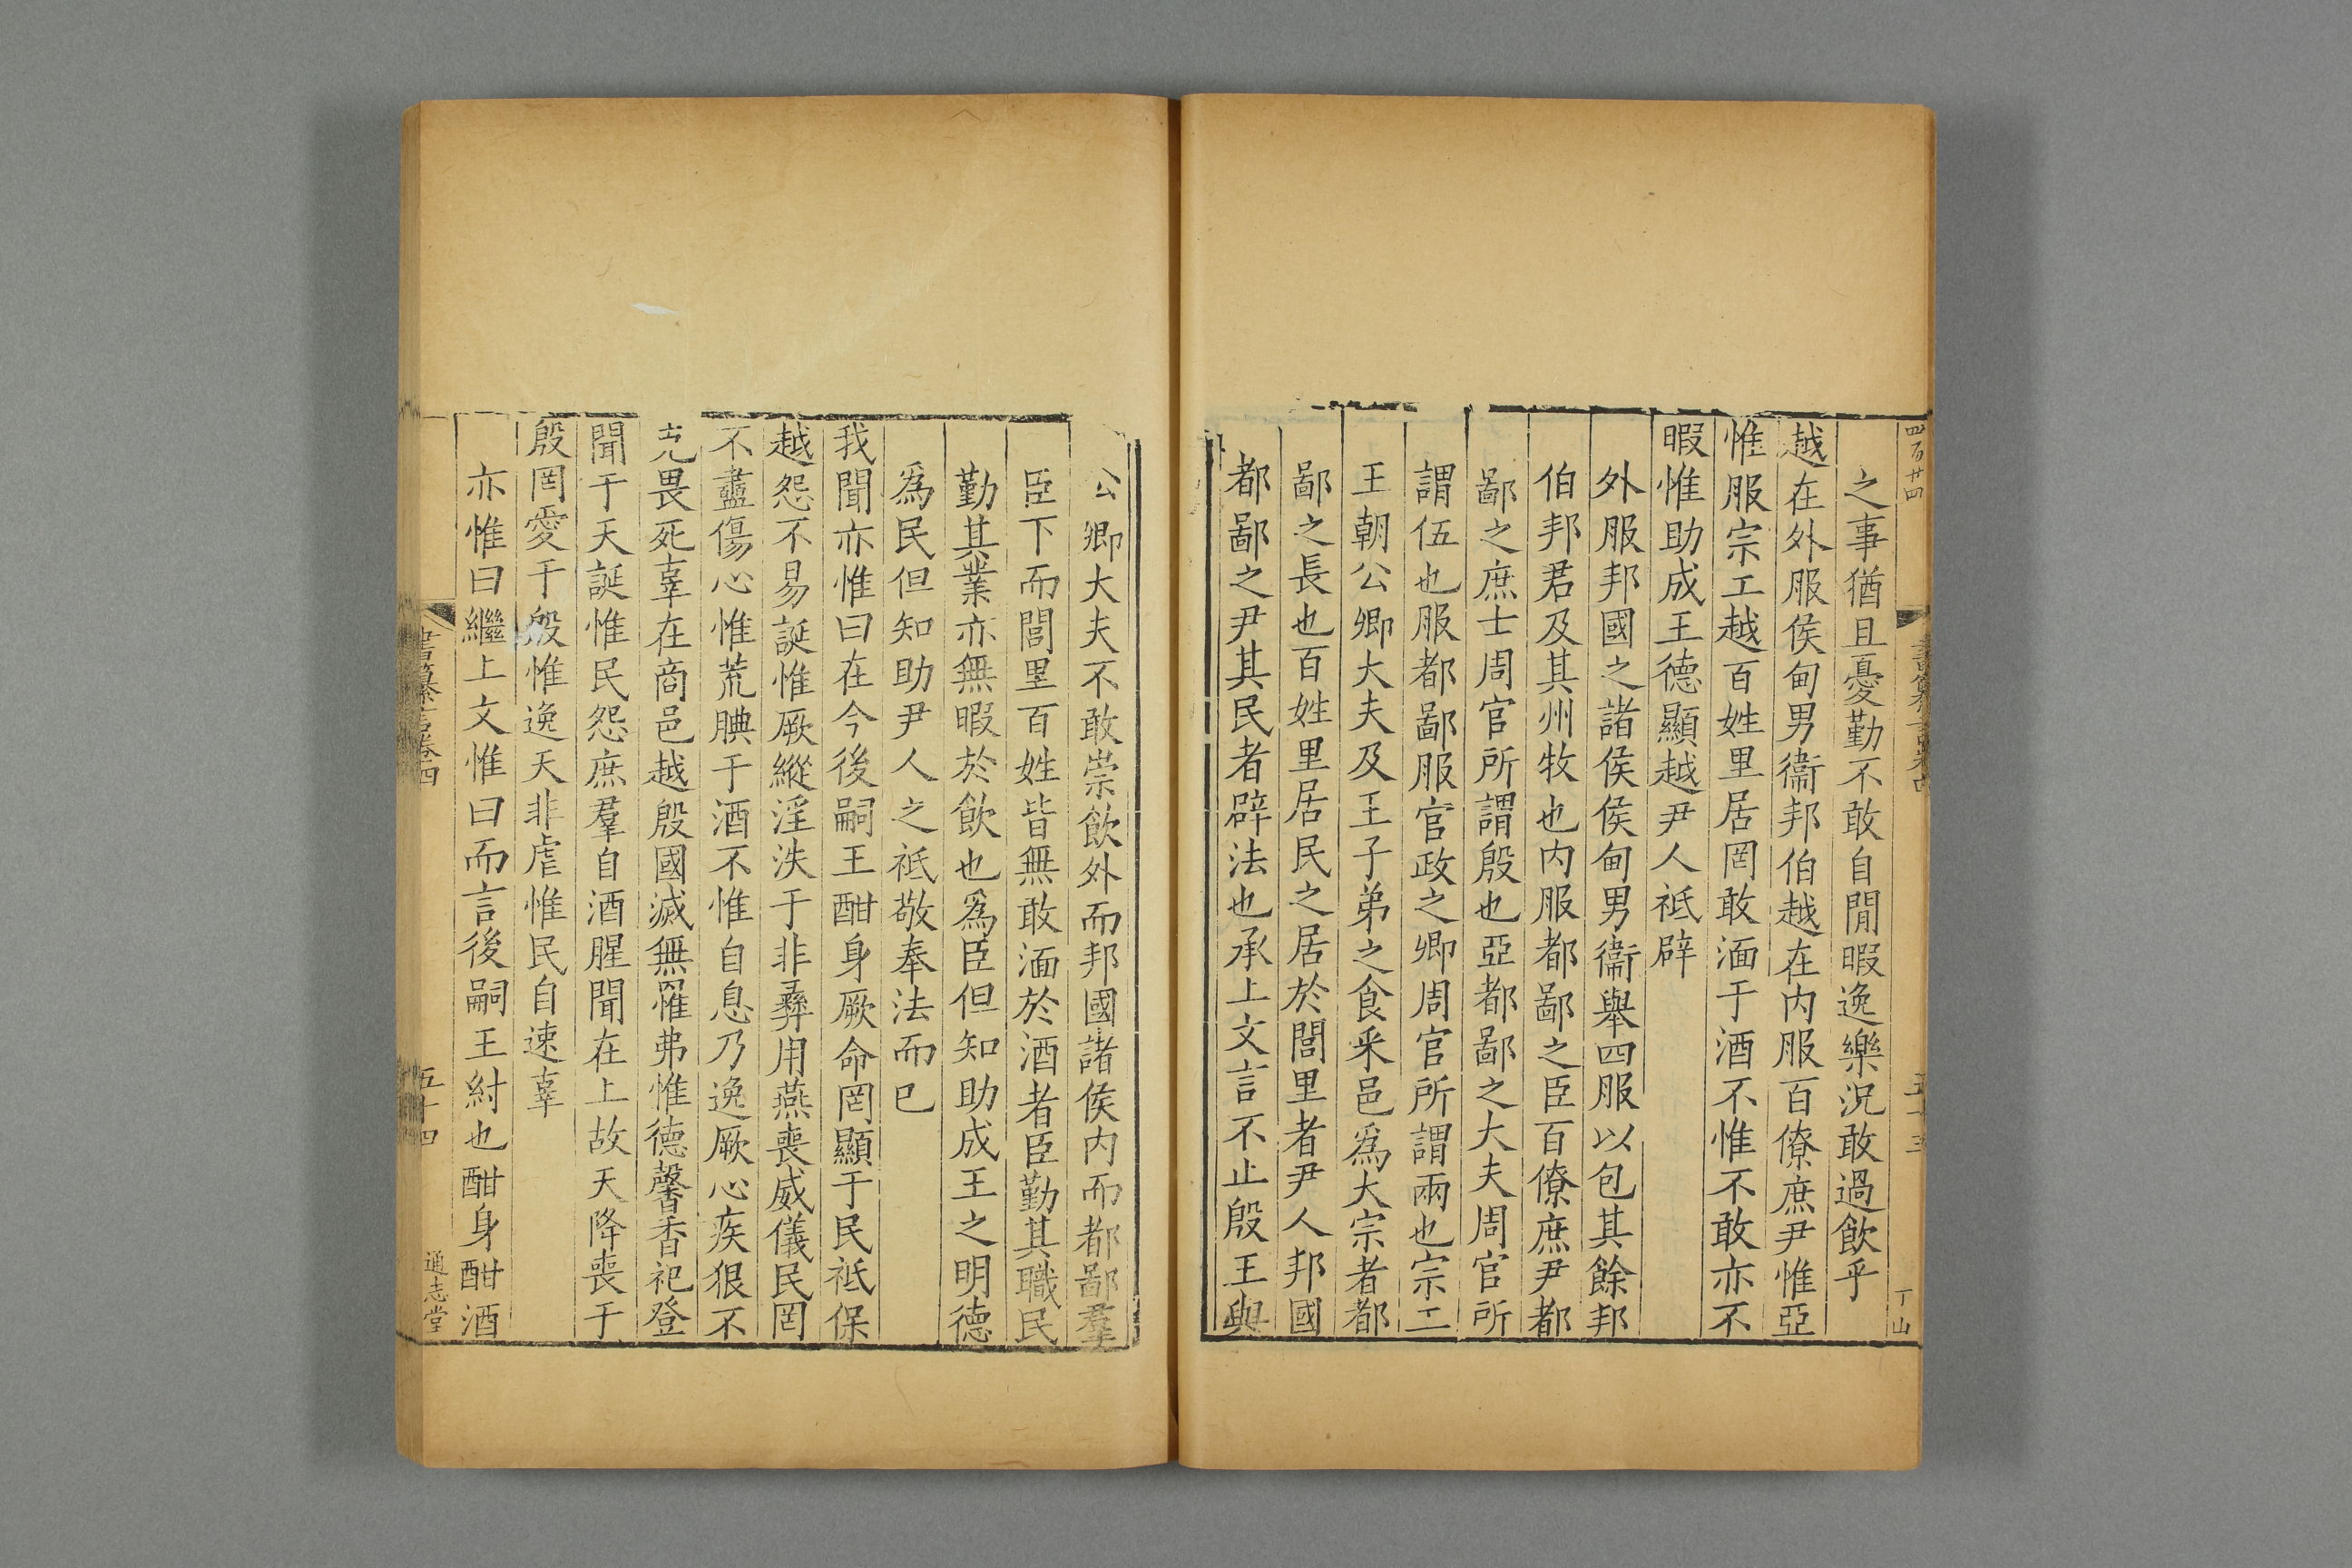 四百廿四
書纂言卷四
五十三
丁山
之事猶且憂勤不敢自閒暇逸樂況敢過飲乎
越在外服侯甸男衞邦伯越在内服百僚庶尹惟亞
惟服宗工越百姓里居罔敢湎于酒不惟不敢亦不
暇惟助成王德顯越尹人祗辟
外服邦國之諸侯侯甸男衞舉四服以包其餘邦
伯邦君及其州牧也内服都鄙之臣百僚庶尹都
鄙之庶士周官所謂殷也亞都鄙之大夫周官所
謂伍也服都鄙服官政之卿周官所謂兩也宗工
王朝公卿大夫及王子弟之食釆邑爲大宗者都
鄙之長也百姓里居民之居於閭里者尹人邦國
都鄙之尹其民者辟法也承上文言不止殷王與
公卿大夫不敢崇飲外而邦國諸侯内而都鄙羣
臣下而閭里百姓皆無敢湎於酒者臣勤其職民
勤其業亦無暇於飲也爲臣但知助成王之明德
爲民但知助尹人之祗敬奉法而已
我聞亦惟曰在今後嗣王酣身厥命罔顯于民祗保
越怨不易誕惟厥縱淫泆于非彝用燕喪威儀民罔
不衋傷心惟荒腆于酒不惟自息乃逸厥心疾狠不
克畏死辜在商邑越殷國滅無罹弗惟德馨香祀登
聞于天誕惟民怨庶羣自酒腥聞在上故天降喪于
殷罔愛于殷惟逸天非虐惟民自速辜
亦惟曰繼上文惟曰而言後嗣王紂也酣身酣酒
書纂言卷四
五十四
通志堂